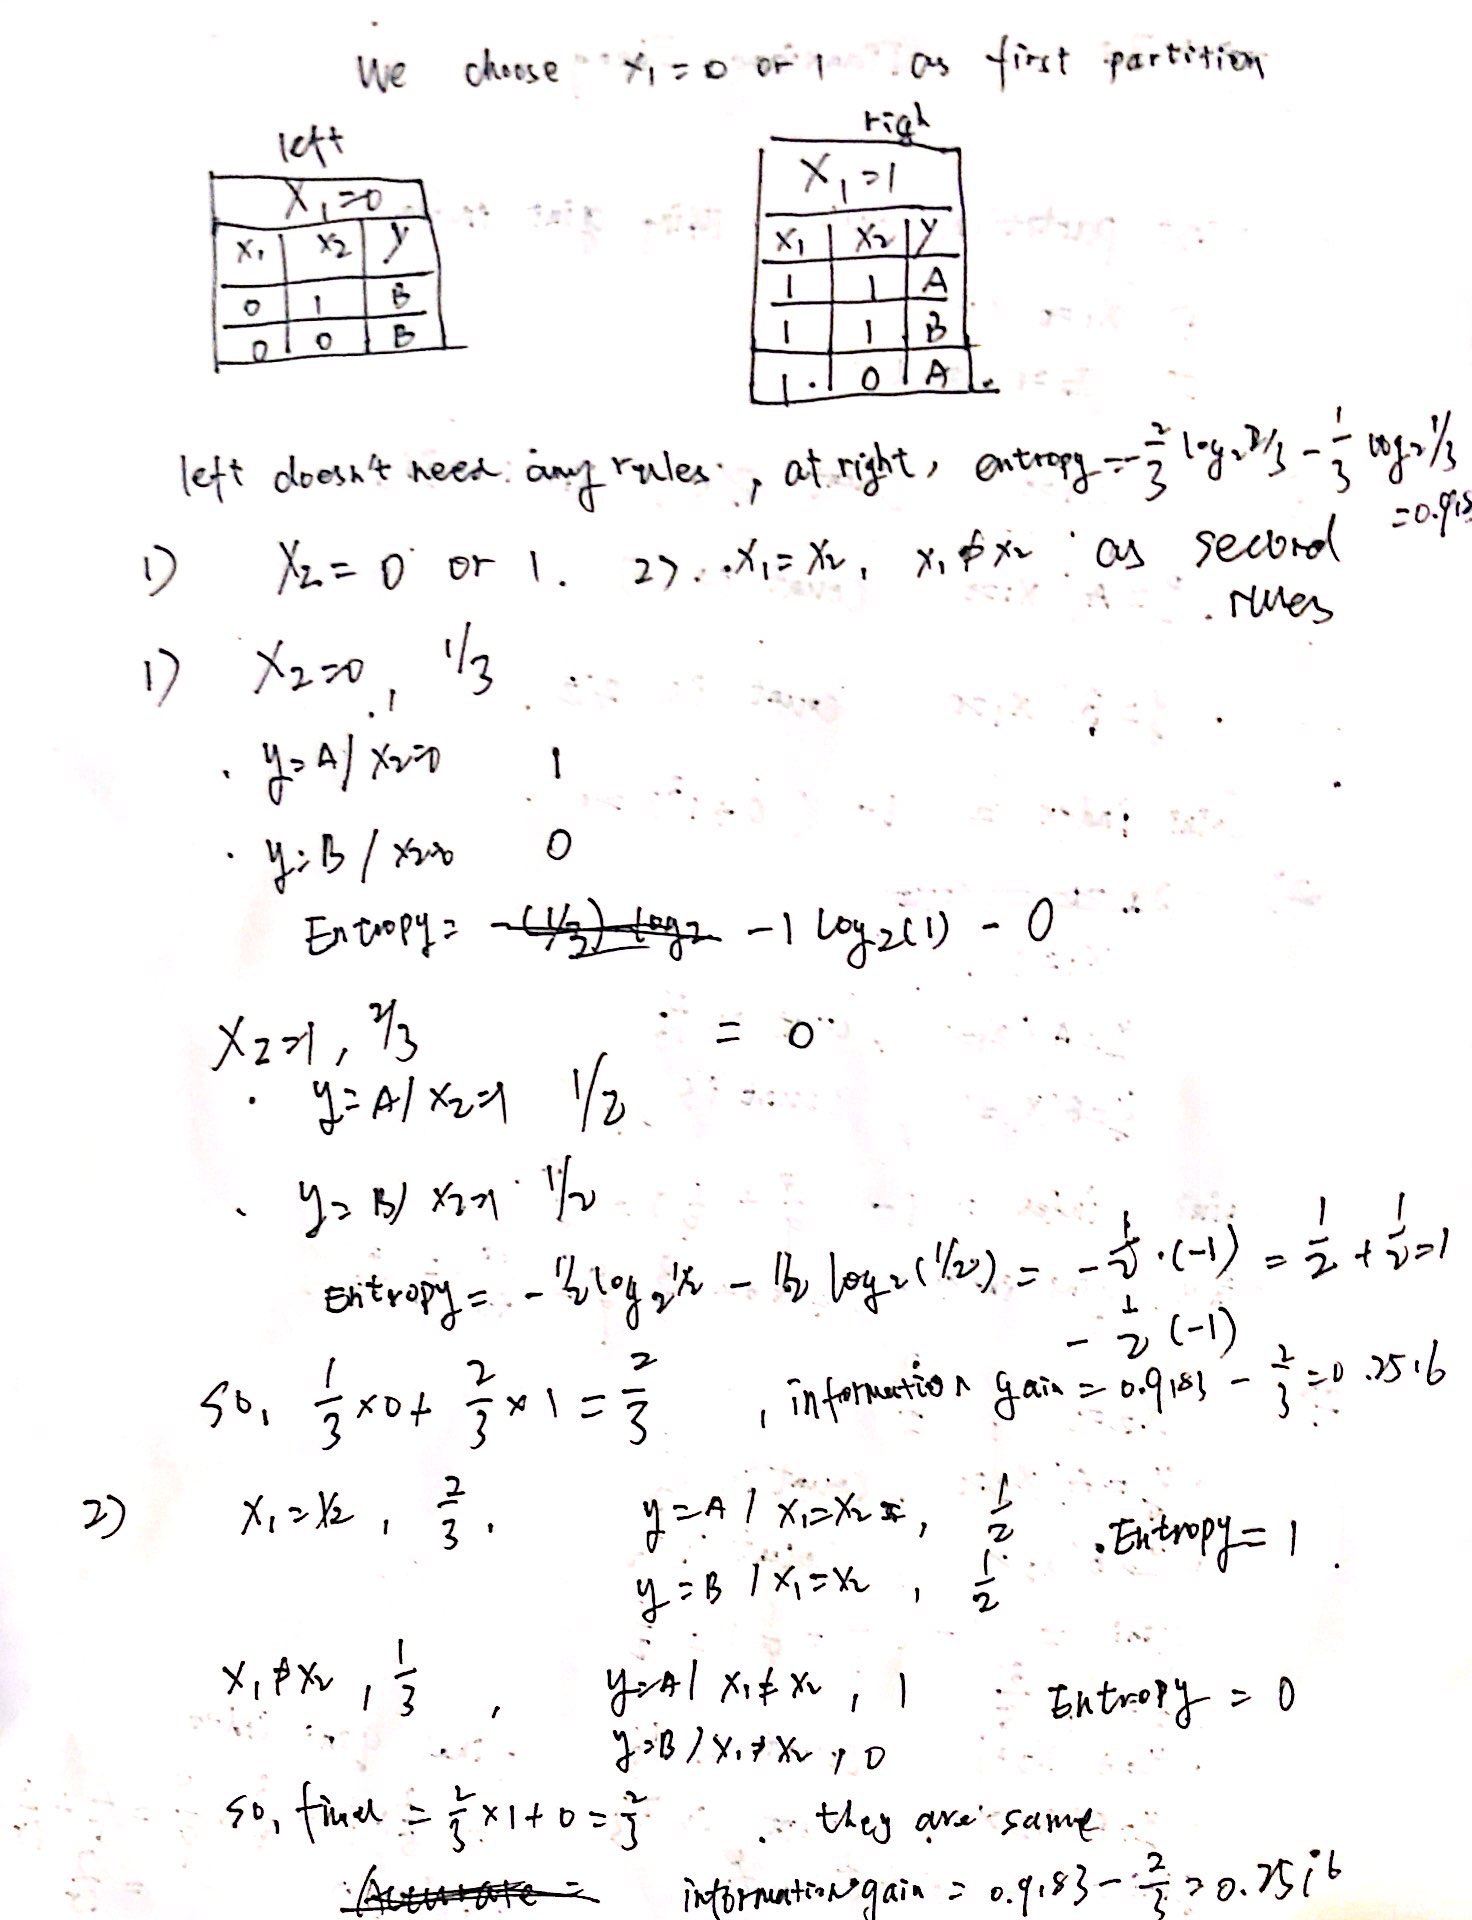 We choose x₁=0 or 1 as first partition
left
X₁=0
x₁ x₂ y
0 1 B
0 0 B
righ
X₁=1
x₁ x₂ y
1 1 A
1 1 B
1 0 A
left doesn't need any rules, at right, entropy=-2/3 log₂ 2/3 - 1/3 log₂ 1/3
=0.918
1) X₂=0 or 1. 2). x₁=x₂, x₁≠x₂ as second
rules
1) X₂=0, 1/3
y=A/x₂=0 1
y=B/x₂=0 0
Entropy= -1 log₂(1) - 0
= 0
X₂=1, 2/3
y=A/x₂=1 1/2
y=B/x₂=1 1/2
Entropy= -1/2 log₂ 1/2 - 1/2 log₂(1/2) = -1/2·(-1) = 1/2 + 1/2=1
- 1/2 (-1)
so, 1/3×0+ 2/3×1=2/3, information gain=0.9183-2/3=0.2516
2) x₁=x₂, 2/3. y=A/x₁=x₂, 1/2 Entropy=1
y=B/x₁=x₂, 1/2
x₁≠x₂, 1/3, y=A/x₁≠x₂, 1 Entropy=0
y=B/x₁≠x₂, 0
so, final = 2/3×1+0=2/3 they are same
Accurate =
information gain = 0.9183-2/3=0.2516